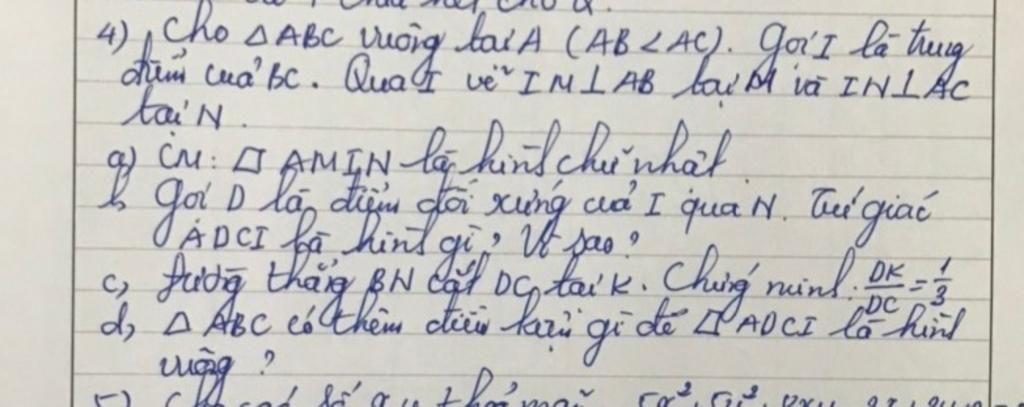 4) Cho △ABC vuông tại A (AB < AC). Gọi I là trung
điểm của BC. Qua I vẽ IM⊥AB tại M và IN⊥AC
tại N.
a) CM: ▱ AMIN là hình chữ nhật
b, Gọi D là điểm đối xứng của I qua N. Tứ giác
ADCI là hình gì, Vì sao?
c, Đường thẳng BN cắt DC tại K. Chứng minh: DK/DC = 1/3
d, △ ABC có thêm điều kiện gì để ▱ ADCI là hình
vuông?